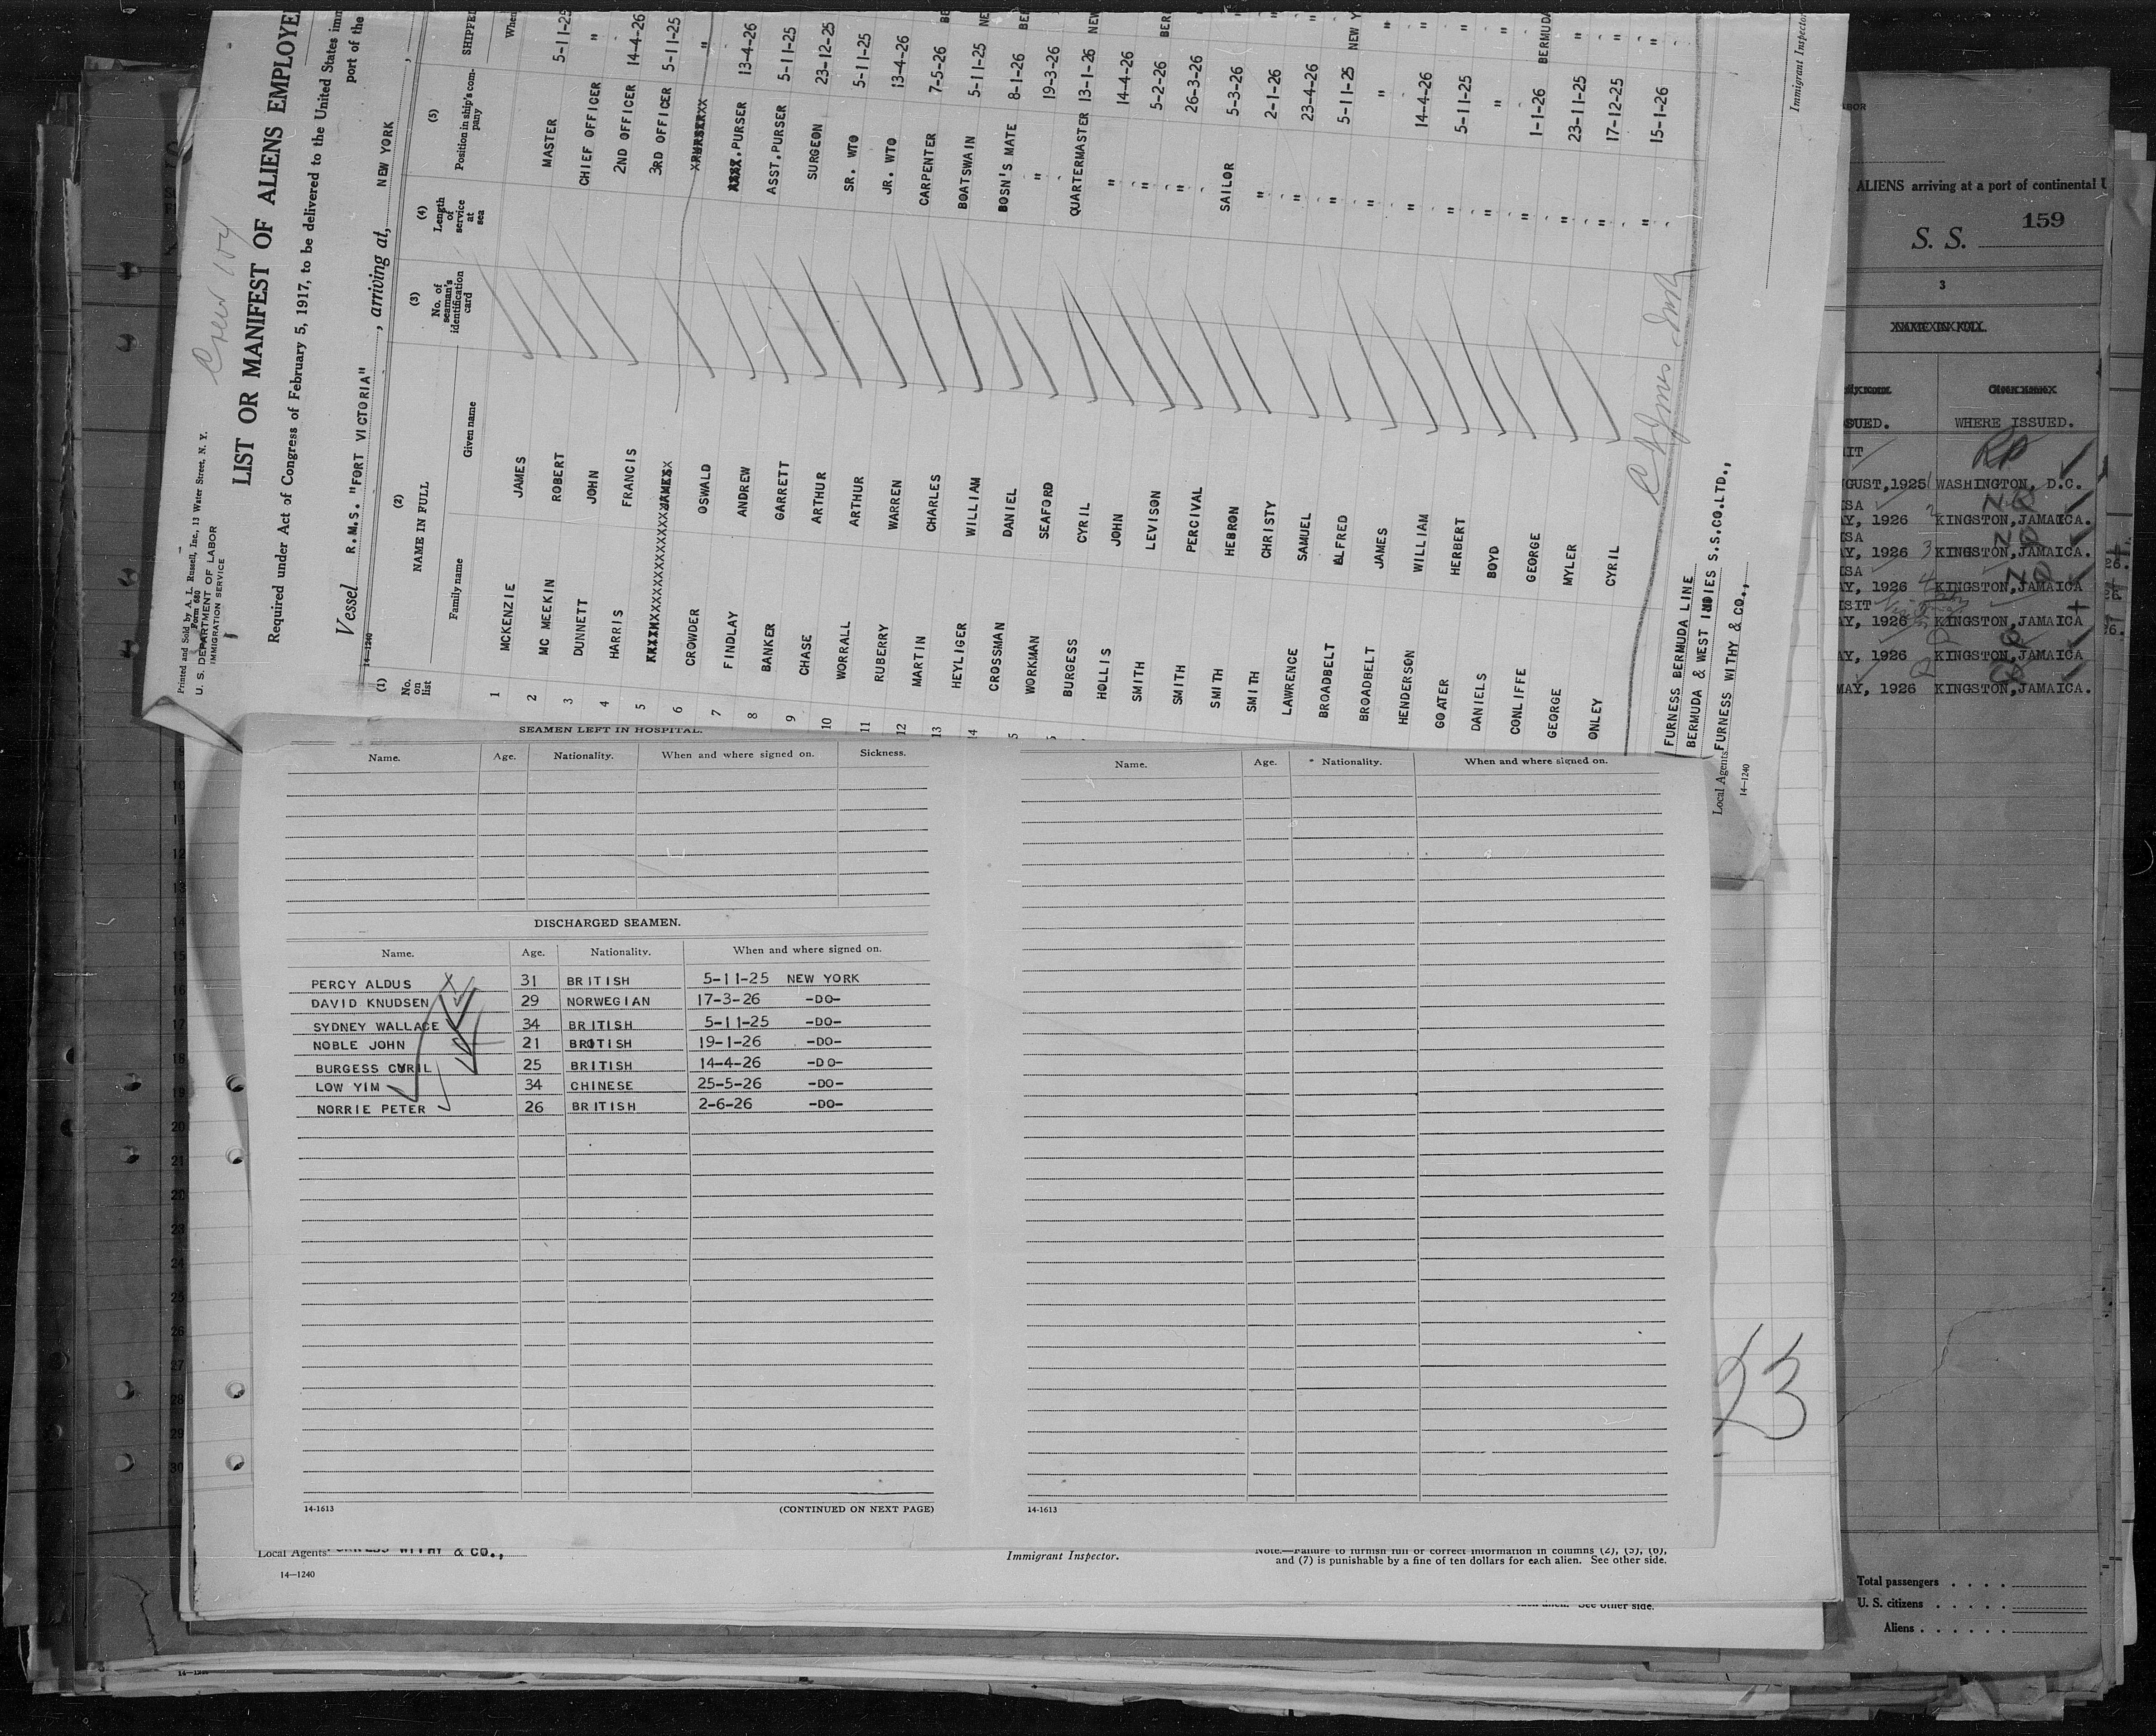 Crew
Printed and Sold by A. L. Russell, Inc., 13 Water Street, N. Y.
Form 680
U. S. DEPARTMENT OF LABOR
IMMIGRATION SERVICE
LIST OR MANIFEST OF ALIENS EMPLOYE
Required under Act of Congress of February 5, 1917, to be delivered to the United States imm
port of the
Vessel R.M.S. "FORT VICTORIA" , arriving at, NEW YORK ,
14—1240
(1) (2) (3) (4) (5)
No. on list NAME IN FULL No. of seaman's identification card Length of service at sea Position in ship's company SHIPPED
Family name Given name When
1 MCKENZIE JAMES MASTER 5-11-25
2 MC MEEKIN ROBERT CHIEF OFFICER "
3 DUNNETT JOHN 2ND OFFICER 14-4-26
4 HARRIS FRANCIS 3RD OFFICER 5-11-25
5 "
6 CROWDER OSWALD PURSER 13-4-26
7 FINDLAY ANDREW ASST.PURSER 5-11-25
8 BANKER GARRETT SURGEON 23-12-25
9 CHASE ARTHUR SR. WTO 5-11-25
10 WORRALL ARTHUR JR. WTO 13-4-26
11 RUBERRY WARREN CARPENTER 7-5-26 BE
12 MARTIN CHARLES BOATSWAIN 5-11-25 NE
13 HEYLIGER WILLIAM BOSN'S MATE 8-1-26 BER
14 CROSSMAN DANIEL " 19-3-26
WORKMAN SEAFORD QUARTERMASTER 13-1-26 NEW
BURGESS CYRIL " 14-4-26
HOLLIS JOHN " 5-2-26 BER
SMITH LEVISON " 26-3-26
SMITH PERCIVAL SAILOR 5-3-26
SMITH HEBRON " 2-1-26
SMITH CHRISTY " 23-4-26
LAWRENCE SAMUEL " 5-11-25 NEW Y
BROADBELT ALFRED " "
BROADBELT JAMES " 14-4-26
HENDERSON WILLIAM " 5-11-25
GOATER HERBERT " "
DANIELS BOYD " 1-1-26 BERMUDA
CONLIFFE GEORGE " 23-11-25 "
GEORGE MYLER " 17-12-25 "
ONLEY CYRIL " 15-1-26 "
FURNESS BERMUDA LINE
BERMUDA & WEST INDIES S.S.CO.LTD.,
Local Agents FURNESS WITHY & CO.,
14—1240
Immigrant Inspector
ALIENS arriving at a port of continental U
159
S. S.
3
SUED. WHERE ISSUED.
UGUST,1925 WASHINGTON, D.C.
AY, 1926 KINGSTON,JAMAICA.
AY, 1926 KINGSTON,JAMAICA.
AY, 1926 KINGSTON,JAMAICA
AY, 1926 KINGSTON,JAMAICA
AY, 1926 KINGSTON,JAMAICA
MAY, 1926 KINGSTON,JAMAICA.
SEAMEN LEFT IN HOSPITAL.
Name. Age. Nationality. When and where signed on. Sickness.
DISCHARGED SEAMEN.
Name. Age. Nationality. When and where signed on.
PERCY ALDUS 31 BRITISH 5-11-25 NEW YORK
DAVID KNUDSEN 29 NORWEGIAN 17-3-26 -DO-
SYDNEY WALLACE 34 BRITISH 5-11-25 -DO-
NOBLE JOHN 21 BRITISH 19-1-26 -DO-
BURGESS CYRIL 25 BRITISH 14-4-26 -DO-
LOW YIM 34 CHINESE 25-5-26 -DO-
NORRIE PETER 26 BRITISH 2-6-26 -DO-
14-1613 (CONTINUED ON NEXT PAGE)
Name. Age. Nationality. When and where signed on.
14-1613
23
Local Agents FURNESS WITHY & CO.,
14—1240
Immigrant Inspector.
Note.—Failure to furnish full or correct information in columns (2), (5), (6),
and (7) is punishable by a fine of ten dollars for each alien. See other side.
each alien. See other side.
Total passengers
U. S. citizens
Aliens
10
11
12
13
14
15
16
17
18
19
20
21
23
24
25
26
27
28
29
30